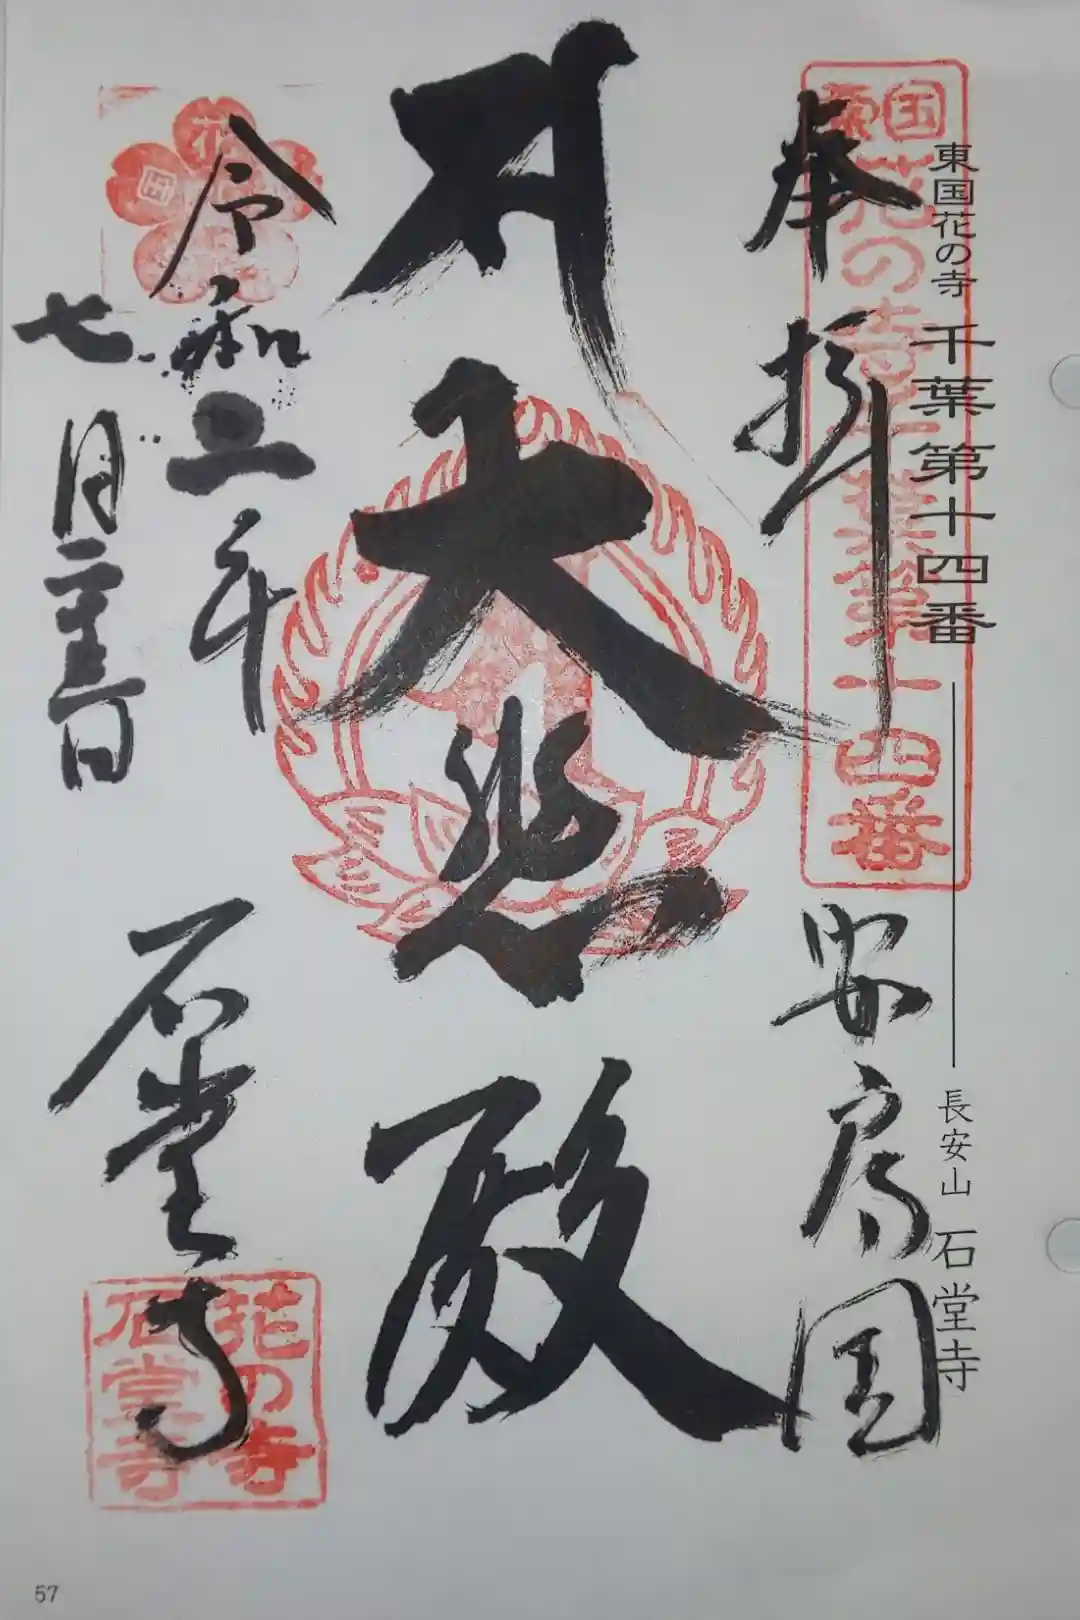 東国花の寺 千葉第十四番 長安山 石堂寺
国花の寺千葉第十四番
奉拝 安房国
大悲殿
令和三年
七月二十三日
石堂寺
花の寺
石堂寺
57